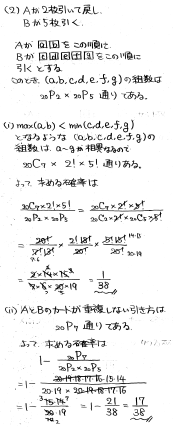 (2) Aが2枚引いて戻し
Bが5枚引く.
Aが a b をこの順に
Bが c d e f g をこの順に
引くとする
このとき, (a,b,c,d,e,f,g)の組数は
₂₀P₂ × ₂₀P₅ 通りである.
(i) max(a,b) < min(c,d,e,f,g)
となるような (a,b,c,d,e,f,g)の
組数は, a~gが相異なるので
₂₀C₇ × 2! × 5! 通りある.
よって 求める確率は
₂₀C₇×2!×5! / ₂₀P₂×₂₀P₅ = ₂₀C₇×2!×5! / ₂₀C₂×2!×₂₀C₅×5!
= 20! / 7!13! × 2!18! / 20! × 5!15! / 20!
= 1/38
(ii) AとBのカードが重複しない引き方は
₂₀P₇ 通りである.
よって, 求める確率は
1 - ₂₀P₇ / ₂₀P₂×₂₀P₅
= 1 - 20·19·18·17·16·15·14 / 20·19 × 20·19·18·17·16
= 1 - 15·14 / 20·19 = 1 - 21/38 = 17/38